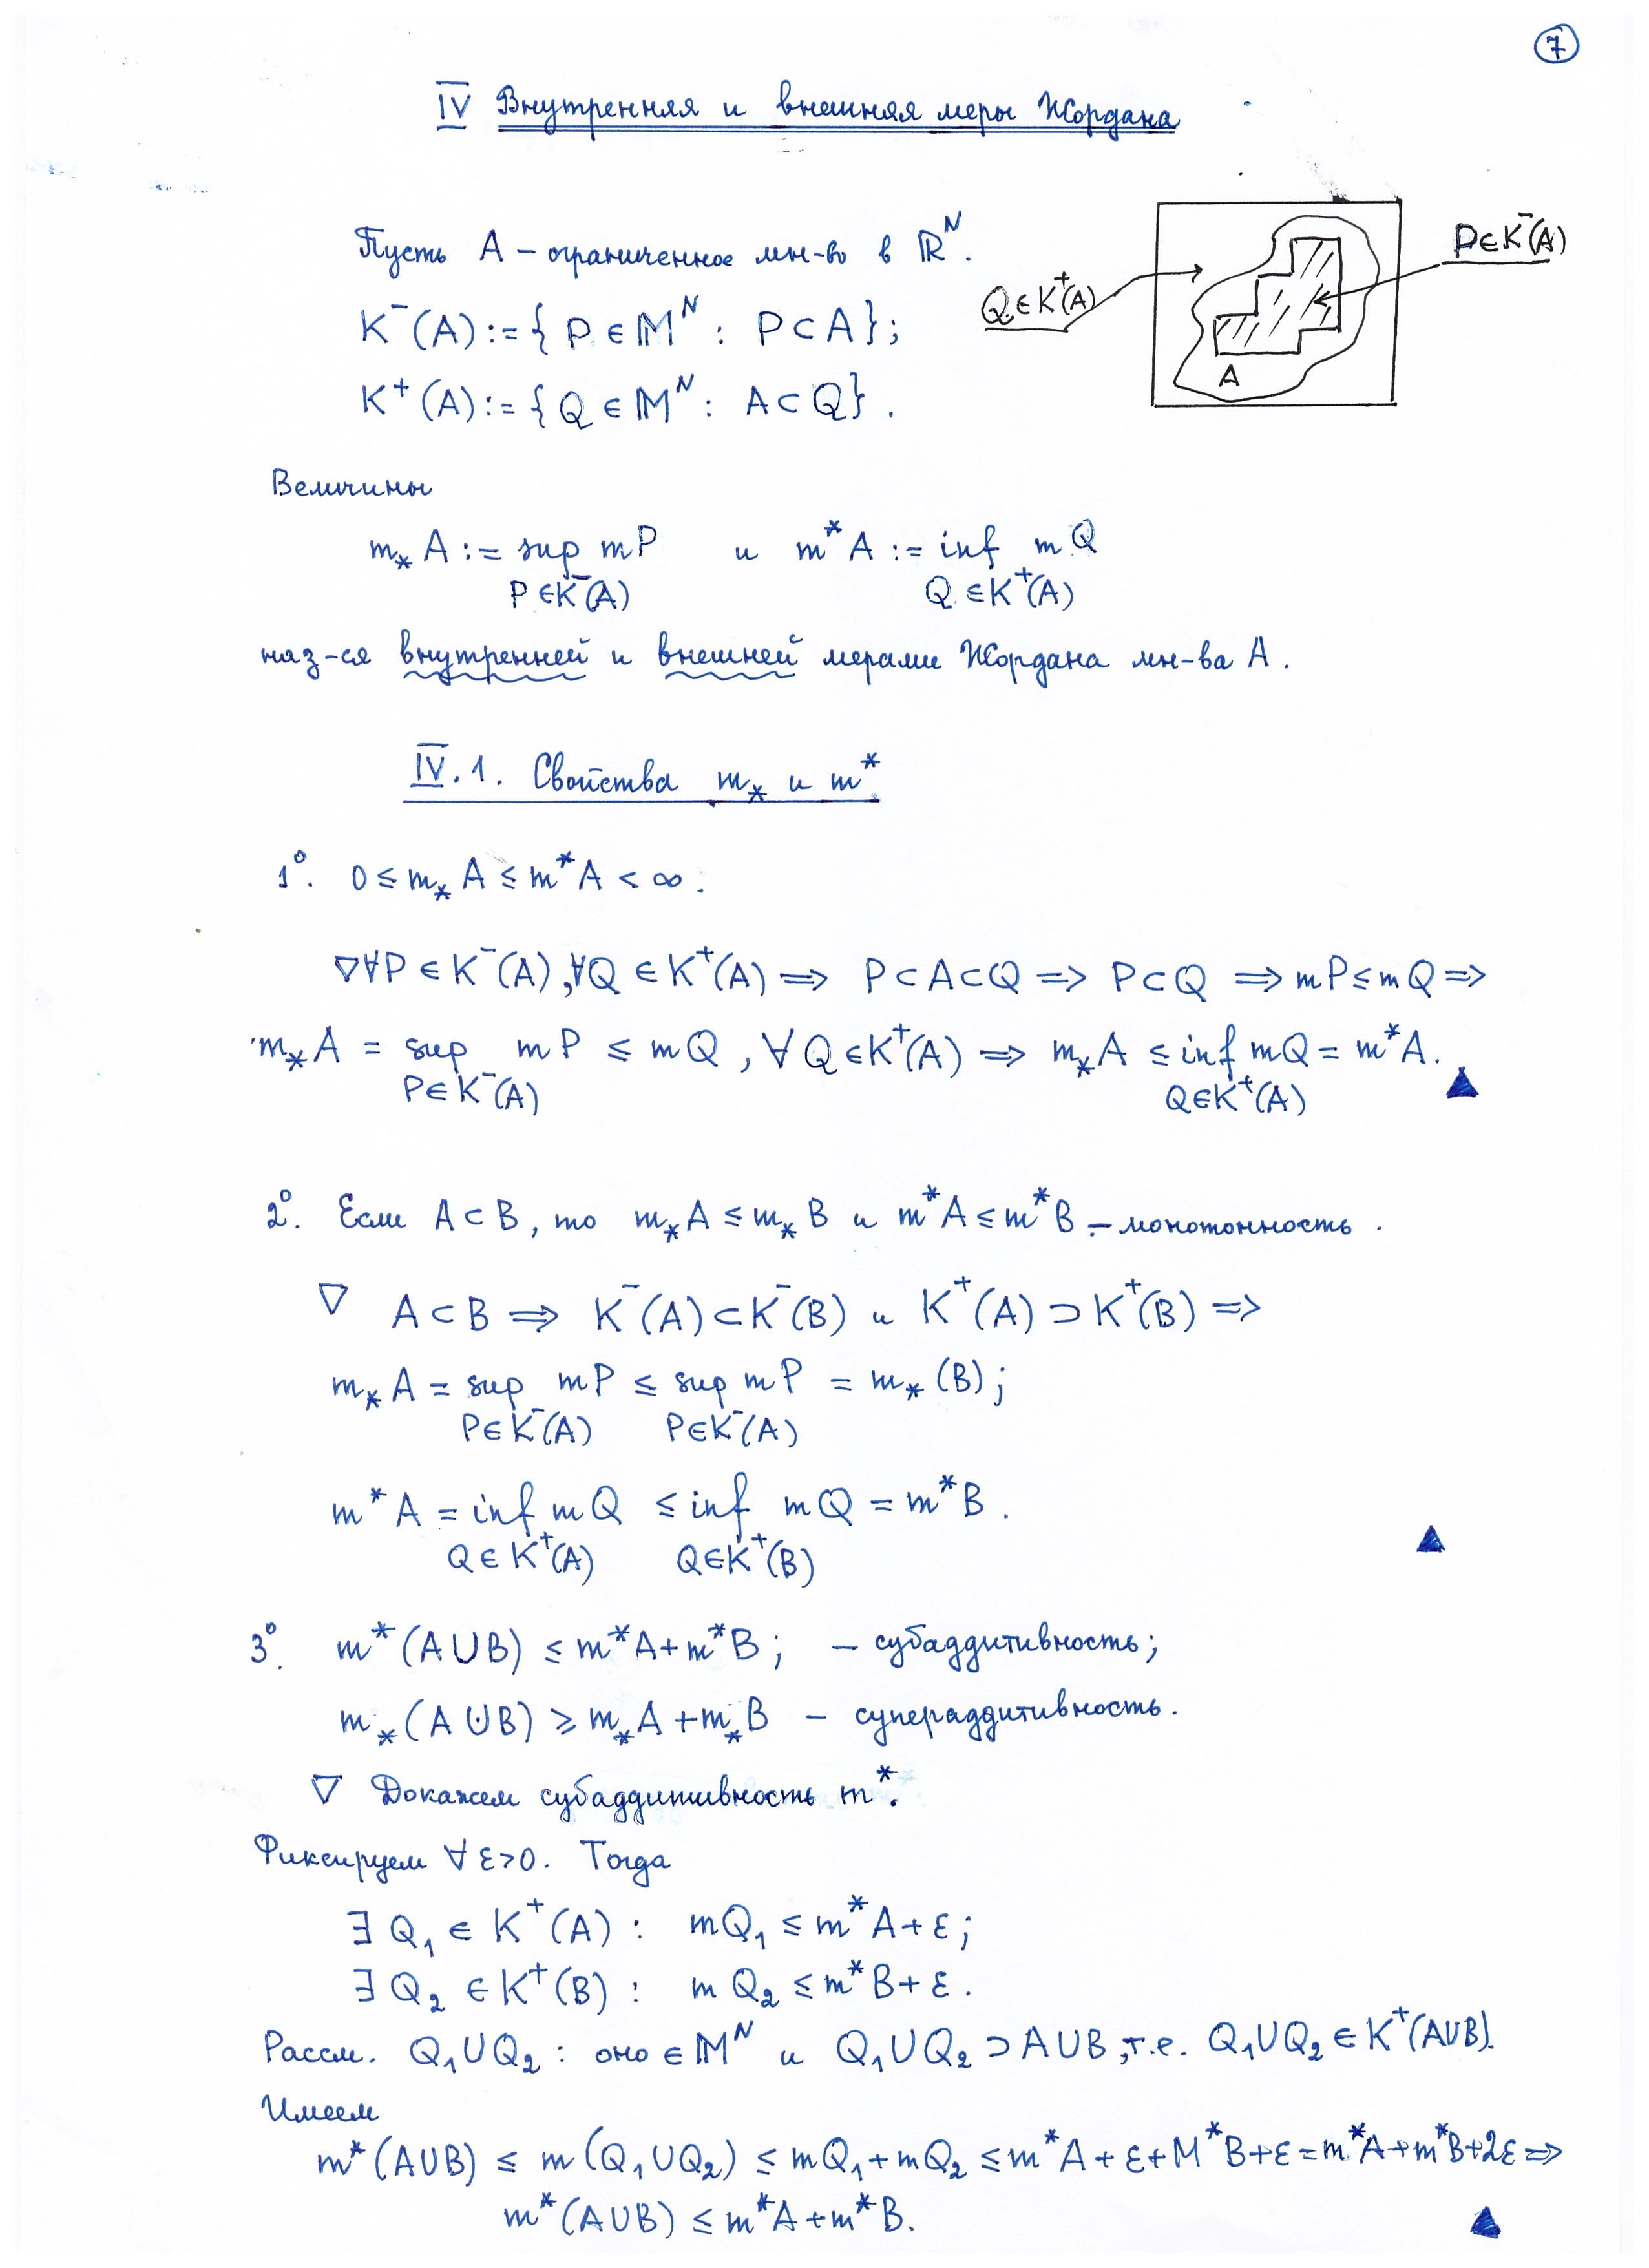 7
IV Внутренняя и внешняя меры Жордана
Пусть A – ограниченное мн-во в ℝᴺ.
K⁻(A) := { P ∈ 𝕄ᴺ : P ⊂ A };
K⁺(A) := { Q ∈ 𝕄ᴺ : A ⊂ Q }.
Q ∈ K⁺(A)
P ∈ K⁻(A)
A
Величины
m_* A := sup mP и m^* A := inf mQ
P ∈ K⁻(A) Q ∈ K⁺(A)
наз-ся внутренней и внешней мерами Жордана мн-ва A.
IV.1. Свойства m_* и m^*
1⁰. 0 ≤ m_* A ≤ m^* A < ∞ :
∇ ∀P ∈ K⁻(A), ∀Q ∈ K⁺(A) ⟹ P ⊂ A ⊂ Q ⟹ P ⊂ Q ⟹ mP ≤ mQ ⟹
m_* A = sup mP ≤ mQ , ∀ Q ∈ K⁺(A) ⟹ m_* A ≤ inf mQ = m^* A. ▲
P ∈ K⁻(A) Q ∈ K⁺(A)
2⁰. Если A ⊂ B, то m_* A ≤ m_* B и m^* A ≤ m^* B – монотонность.
∇ A ⊂ B ⟹ K⁻(A) ⊂ K⁻(B) и K⁺(A) ⊃ K⁺(B) ⟹
m_* A = sup mP ≤ sup mP = m_* (B);
P ∈ K⁻(A) P ∈ K⁻(A)
m^* A = inf mQ ≤ inf mQ = m^* B. ▲
Q ∈ K⁺(A) Q ∈ K⁺(B)
3⁰. m^* (A ∪ B) ≤ m^* A + m^* B ; – субаддитивность;
m_* (A ⊍ B) ≥ m_* A + m_* B – супераддитивность.
∇ Докажем субаддитивность m^*.
Фиксируем ∀ ε>0. Тогда
∃ Q₁ ∈ K⁺(A) : mQ₁ ≤ m^* A + ε;
∃ Q₂ ∈ K⁺(B) : mQ₂ ≤ m^* B + ε.
Рассм. Q₁ ∪ Q₂ : оно ∈ 𝕄ᴺ и Q₁ ∪ Q₂ ⊃ A ∪ B, т.е. Q₁ ∪ Q₂ ∈ K⁺(A ∪ B).
Имеем
m^* (A ∪ B) ≤ m (Q₁ ∪ Q₂) ≤ mQ₁ + mQ₂ ≤ m^* A + ε + M^* B + ε = m^* A + m^* B + 2ε ⟹
m^* (A ∪ B) ≤ m^* A + m^* B. ▲